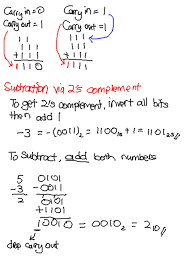 Carry in = 0
Carry out = 1
111
111
+ 111
1110
Carry in = 1
Carry out = 1
111
111
+ 111
1111
Subtraction via 2's complement
To get 2's complement, invert all bits
then add 1
-3 = -(0011)₂ = 1100₂ + 1 = 1101₂
To subtract, add both numbers
5 0101
-3 -0011
2 0101
+1101
10010 = 0010₂ = 2₁₀
drop carry out